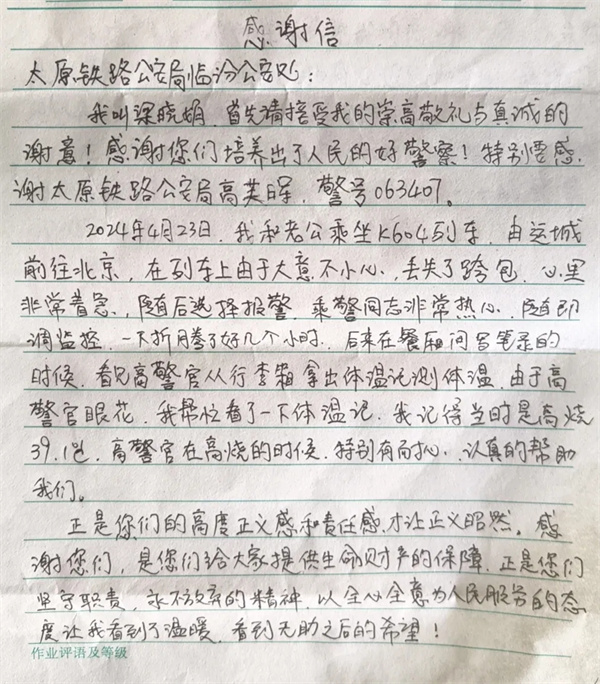 感谢信
太原铁路公安局临汾公安处：
我叫梁晓娟，首先请接受我的崇高敬礼与真诚的
谢意！感谢您们培养出了人民的好警察！特别要感
谢太原铁路公安局高英晖，警号063407。
2024年4月23日，我和老公乘坐K604列车，由运城
前往北京，在列车上由于大意不小心，丢失了跨包，心里
非常着急，随后选择报警，乘警同志非常热心，随即
调监控，一下折腾了好几个小时，后来在餐厢问写笔录的
时候，看见高警官从行李箱拿出体温记测体温，由于高
警官眼花，我帮忙看了一下体温记，我记得当时是高烧
39.1，高警官在高烧的时候，特别有耐心，认真的帮助
我们。
正是您们的高度正义感和责任感，才让正义昭然。感
谢您们，是您们给大家提供生命财产的保障，正是您们
坚守职责，永不放弃的精神，以全心全意为人民服务的态
度让我看到了温暖，看到无助之后的希望！
作业评语及等级